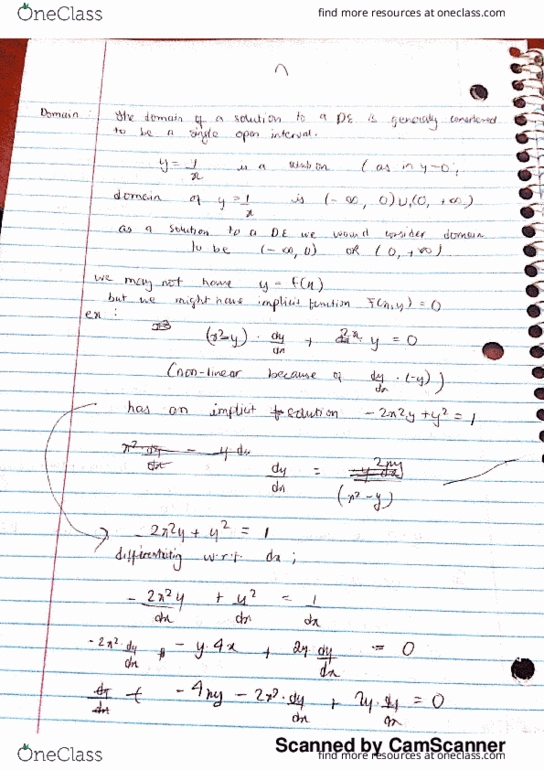 OneClass
find more resources at oneclass.com
Domain : The domain of a solution to a DE is generally considered
to be a single open interval.
y = 1/x is a solution (as in y=0;
domain of y = 1/x is (-∞, 0)∪(0, +∞)
as a solution to a DE we would consider domain
to be (-∞, 0) or (0, +∞)
we may not have y = f(x)
but we might have implicit function f(x,y) = 0
ex :
(x²-y) · dy/dx + 2x y = 0
(non-linear because of dy/dx · (-y))
has an implicit solution -2x²y + y² = 1
x² dy/dx - y dy
dy/dx = 2xy/(x²-y)
- 2x²y + y² = 1
differentiating w.r.t dx ;
- 2x²y/dx + y²/dx = 1/dx
-2x² · dy/dx - y·4x + 2y dy/dx = 0
- 4xy - 2x² · dy/dx + 2y · dy/dx = 0
Scanned by CamScanner
OneClass
find more resources at oneclass.com